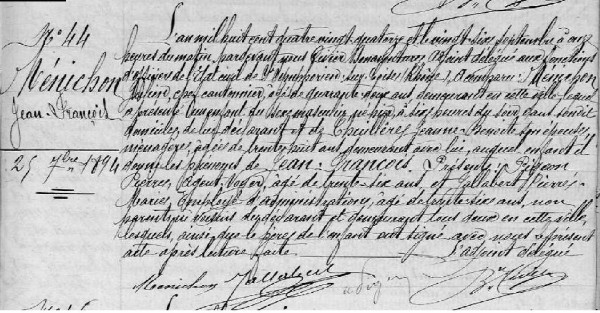 N° 44
Ménichon
Jean-François
25 7bre 1894
L'an mil huit cent quatre vingt quatorze et le vingt-six septembre à onze
heures du matin, pardevant nous Bonaventure, Adjoint délégué aux fonctions
d'officier de l'état civil de St Symphorien (Rhône), a comparu: Menichon
chef cantonnier, âgé de quarante deux ans, demeurant en cette ville, lequel
a présenté un enfant du sexe masculin, né hier, à six heures du soir, dans son dit
domicile, de lui déclarant et de Jeanne son épouse,
ménagère, âgée de trente huit ans, demeurant avec lui, auquel enfant il
donne les prénoms de Jean-François. Présents: Pigeon
Pierre, Agent Voyer, âgé de trente-six ans, et Tallabert Pierre-
Marie, employé d'administration, âgé de ans, non
parents ni du déclarant et demeurant tous deux en cette ville,
lesquels, ainsi que le père de l'enfant ont signé avec nous le présent
acte après lecture faite. L'adjoint délégué
Menichon Tallabert